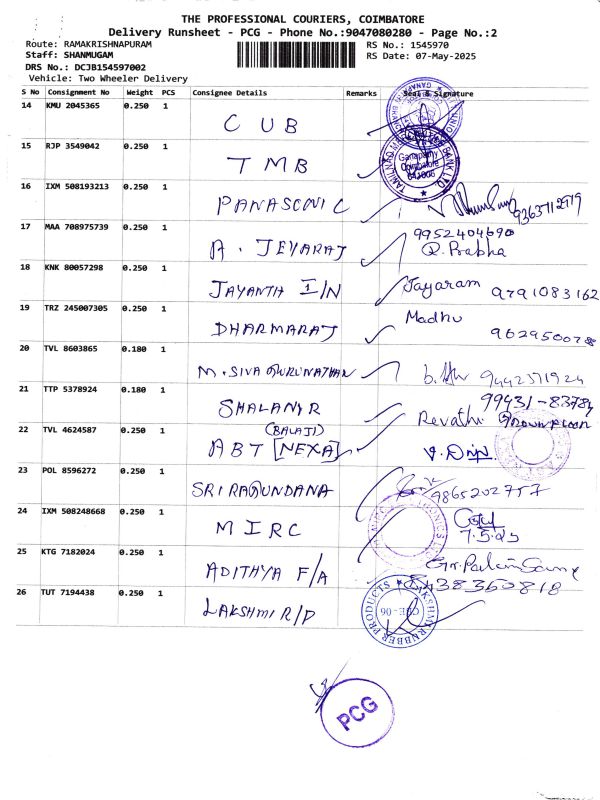 THE PROFESSIONAL COURIERS, COIMBATORE
Delivery Runsheet - PCG - Phone No.:9047080280 - Page No.:2
Route: RAMAKRISHNAPURAM RS No.: 1545970
Staff: SHANMUGAM RS Date: 07-May-2025
DRS No.: DCJB154597002
Vehicle: Two Wheeler Delivery
S No Consignment No Weight PCS Consignee Details Remarks Seal & Signature
14 KMU 2045365 0.250 1
CUB
15 RJP 3549042 0.250 1
TMB
Ganapathy
Coimbatore
641006
16 IXM 508193213 0.250 1
PANASONIC
9363712979
17 MAA 708975739 0.250 1
9952404690
A. JEYARAJ Prabha
18 KNK 80057298 0.250 1
JAYANTH I/N Jayaram 9791083162
19 TRZ 245007305 0.250 1
Madhu
DHARMARAJ
20 TVL 8603865 0.180 1
M. SIVA GURUNATHAN 9442371924
21 TTP 5378924 0.180 1
99431-83784
Revathi
22 TVL 4624587 0.250 1
(BALAJI)
ABT [NEXA]
23 POL 8596272 0.250 1
SRI RAGUNDANA 9865202757
24 IXM 508248668 0.250 1
MIRC 7.5.25
25 KTG 7182024 0.250 1
ADITHYA F/A
26 TUT 7194438 0.250 1
LAKSHMI R/P
LAKSHMI RUBBER PRODUCTS
CBE-06
PCG